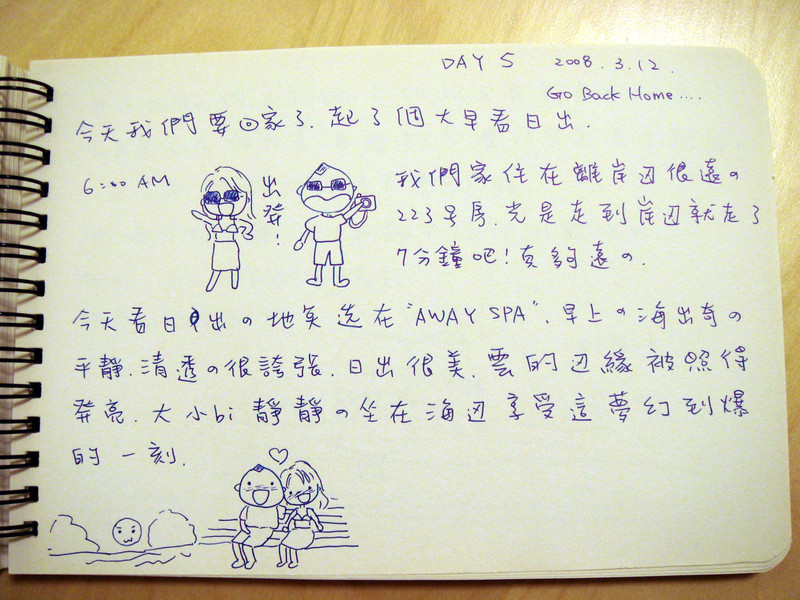 DAY 5 2008.3.12.
Go Back Home....
今天我們要回家了.起了個大早看日出.
6:00 AM
出發!
我們家住在離岸边很遠の
223号房.光是走到岸边就走了
7分鐘吧!真夠遠の.
今天看日出の地点选在"AWAY SPA".早上の海出奇の
平靜.清透の很誇張.日出很美.雲的边緣被照得
発亮.大小bi靜靜の坐在海边享受這夢幻到爆
的一刻.